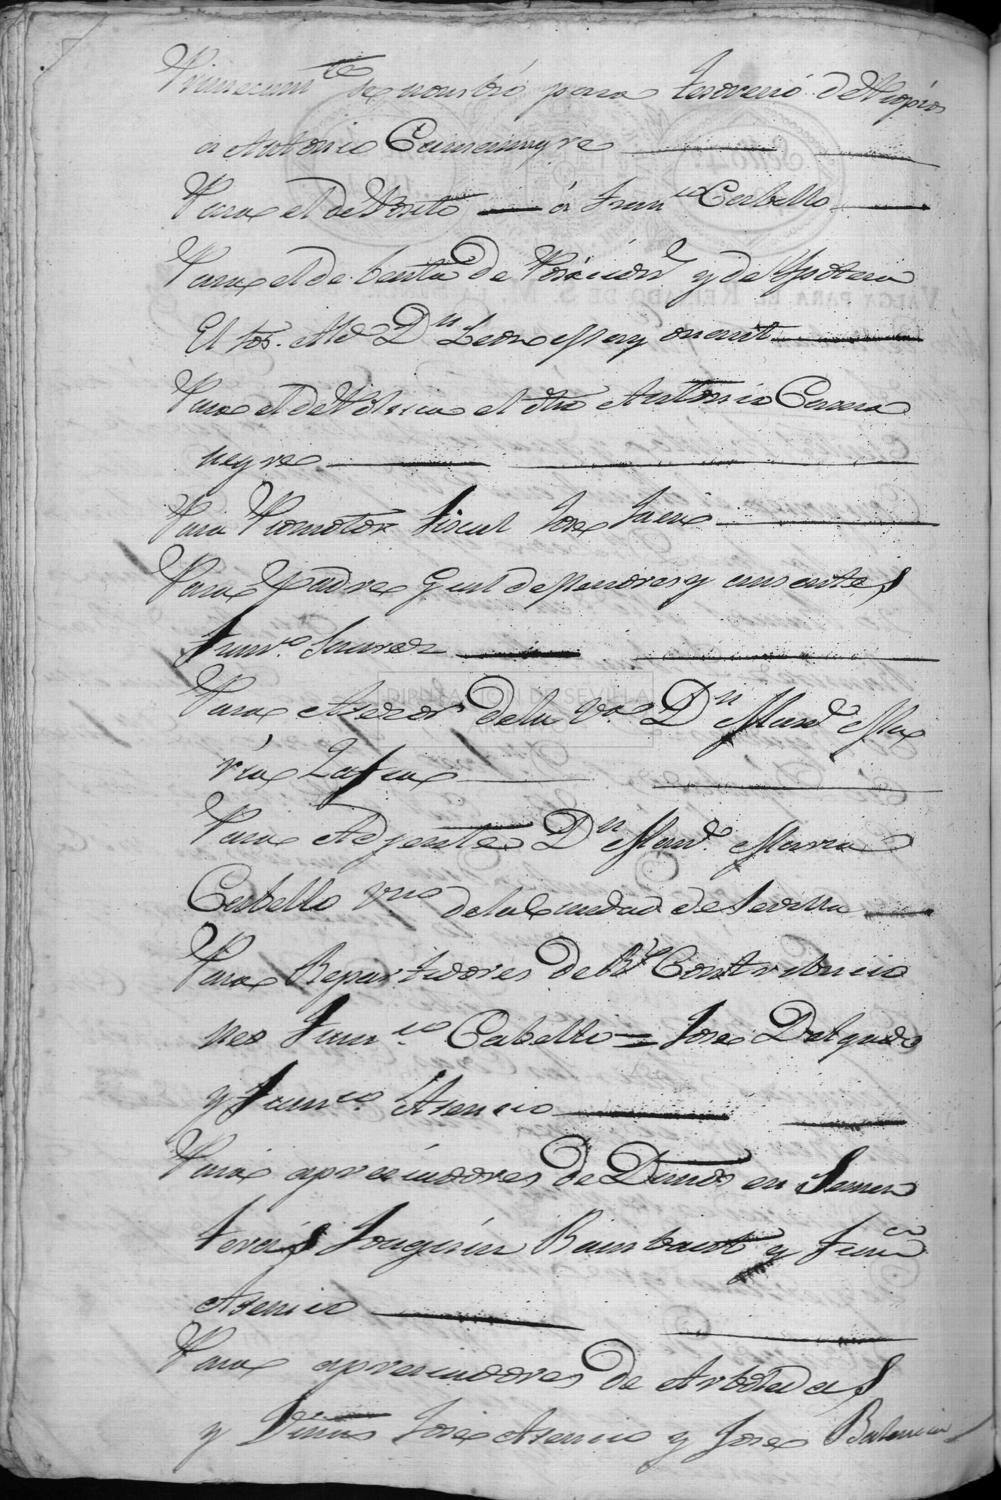 Primeram.te se nombró para tesorero de Propios
a Antonio Casanegre
Para el de Posito a Fran.co Carbello
Para el de benta de Posicion y de Ypoteca
El sor. Alde Dn Leon Mayoment
Para el de Policia el dho Antonio Casa
negre
Para Promotor fiscal Jose Jaen
Para Padre Gral de Menores y ausentes
Fran.co Suarez
Para Asesor de la va Dn Manl Ma
ria Zafra
Para Adjunto Dn Manl. Maria
Carbello vno de la Ciudad de Sevilla
Para Repartidores de Rs Contribucio
nes Fran.co Cabello = Jose Delgado
y Fran.co Asencio
Para apreciadores de Danos en Semen
teras Joaquin Rambaut y Fran.co
Asencio
Para apreciadores de Arboledas
y Viñas Jose Asencio y Jose Balencia
DIPUTACIÓN DE SEVILLA
ARCHIVO
VALGA PARA EL REINADO DE S. M.